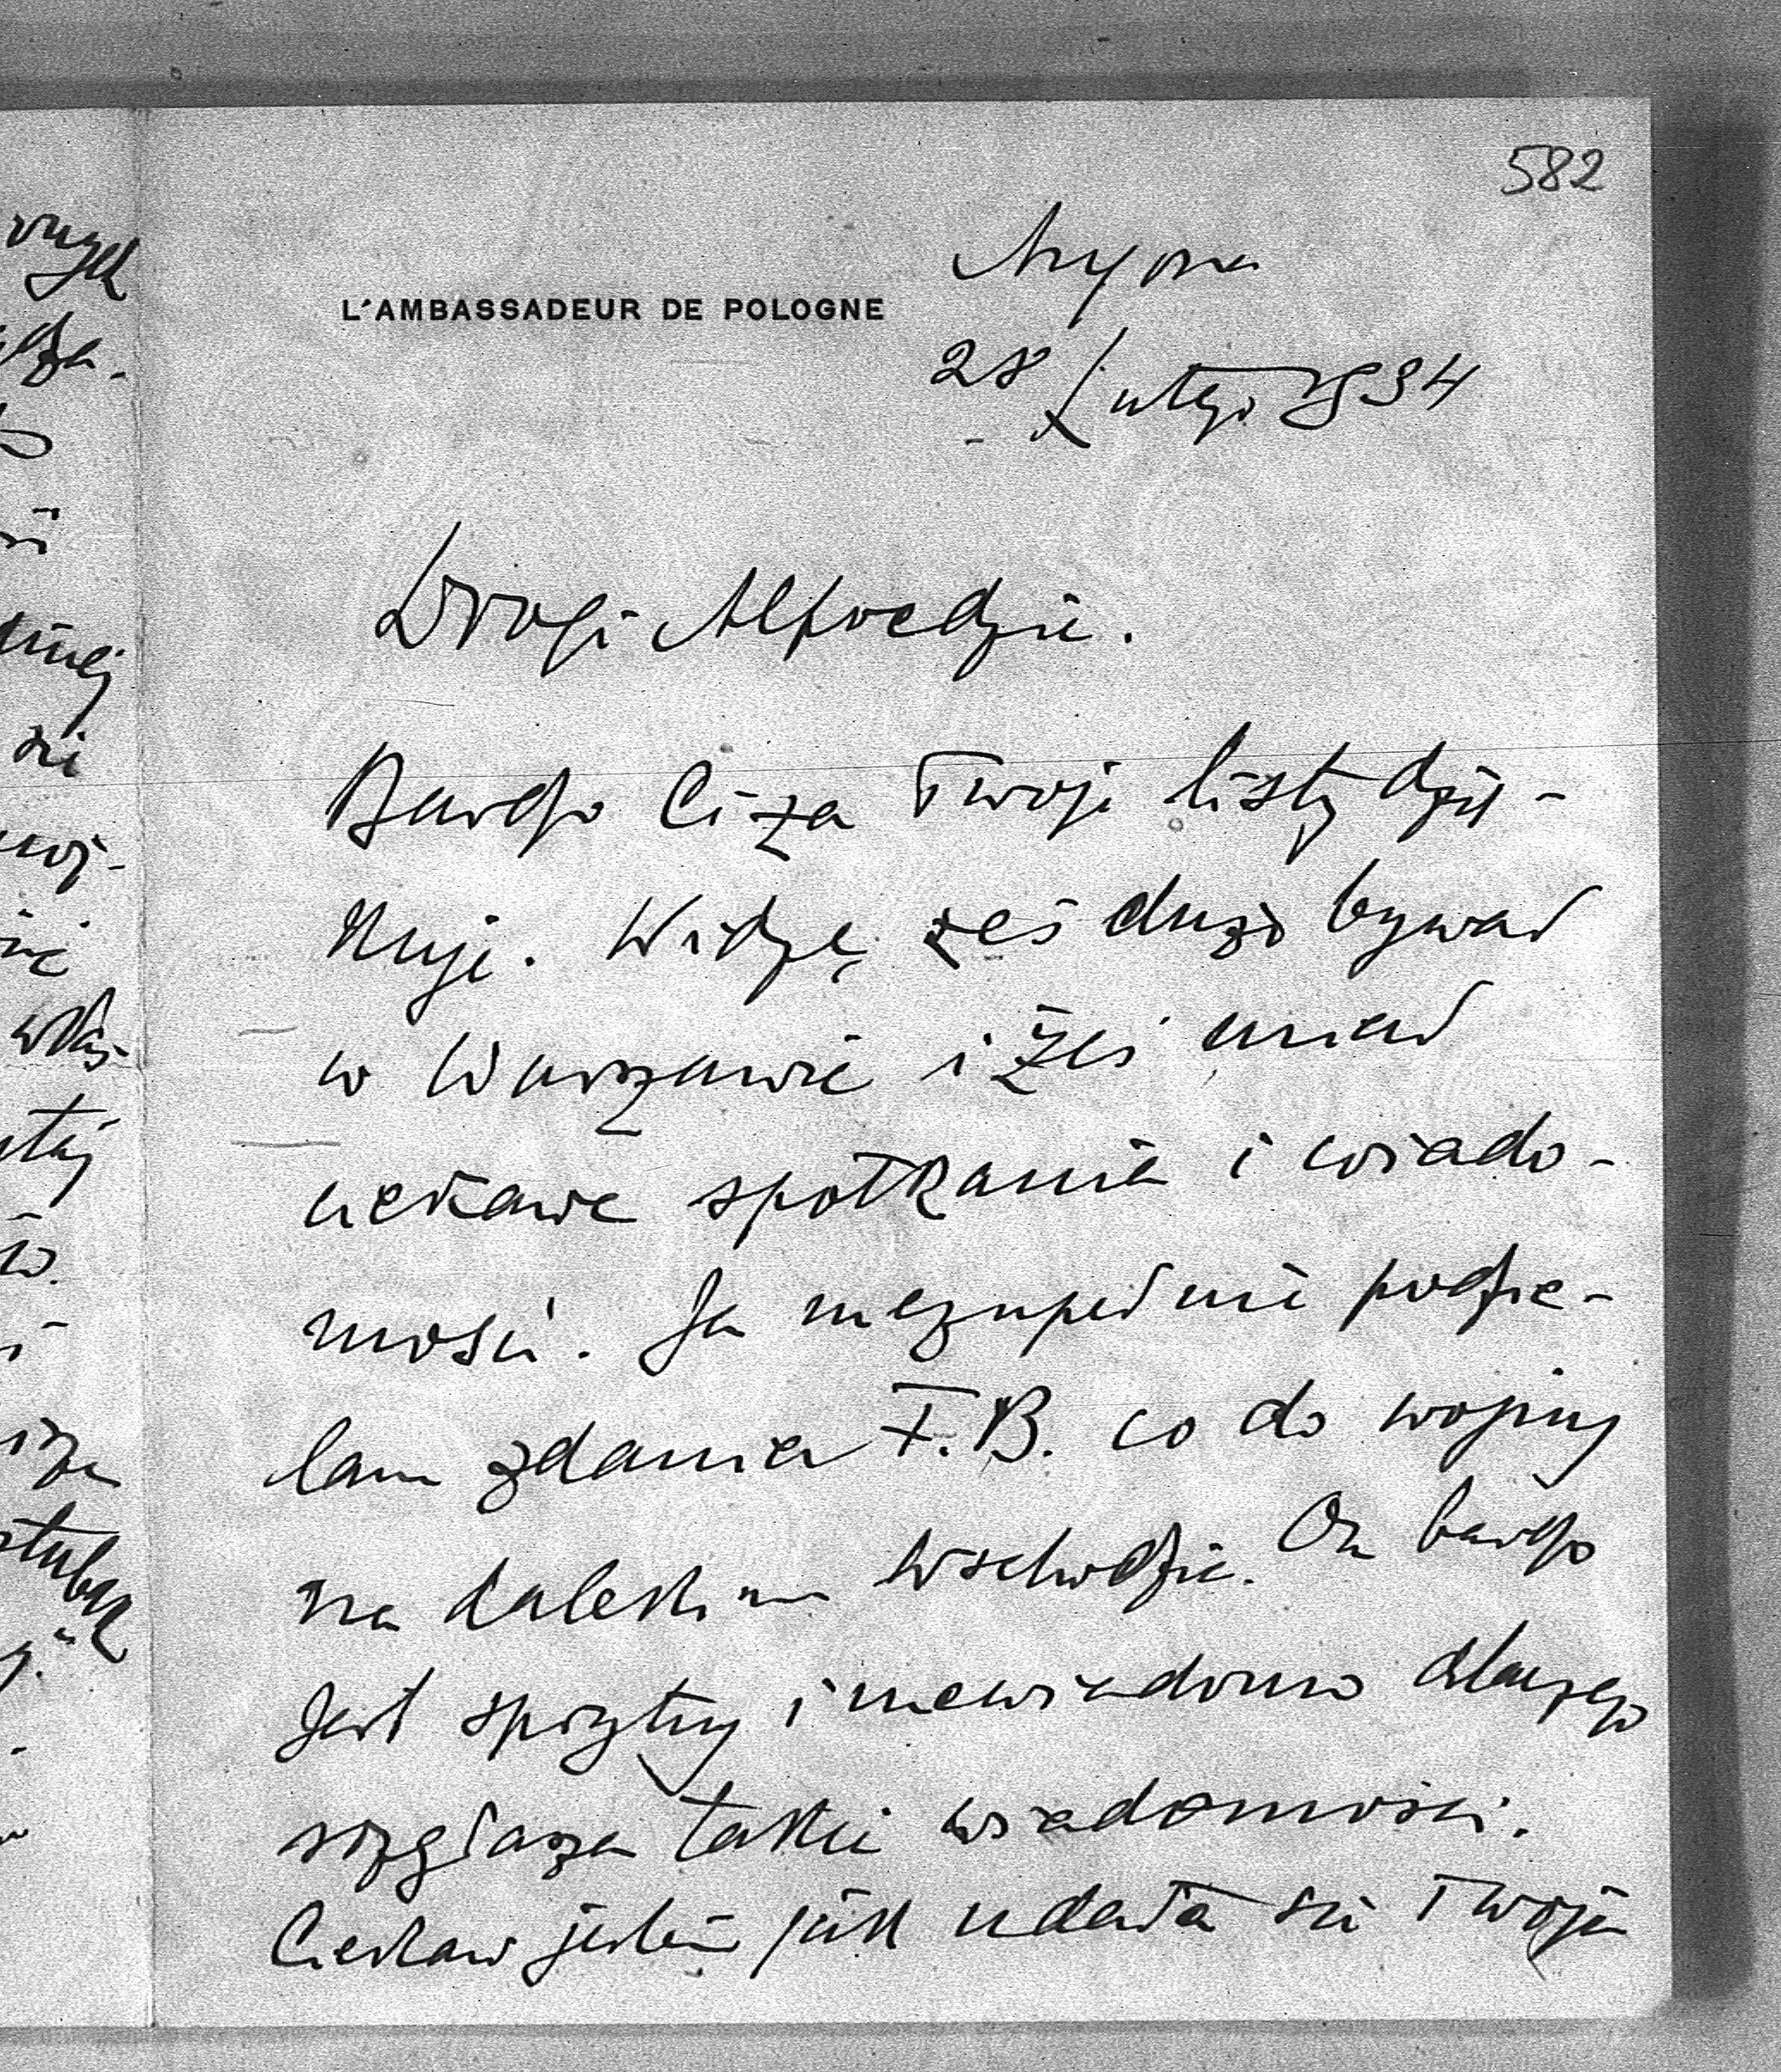 582
L'AMBASSADEUR DE POLOGNE
28 Lutego 1934
Drogi Alfredzie.
Bardzo Ci za Twoje listy dzię-
kuję. Widzę, żeś dużo bywał
w Warszawie i żeś miał
ciekawe spotkania i wiado-
mości. Ja niezupełnie podzie-
lam zdania F.B. co do wojny
na dalekim wschodzie. On bardzo
jest sprytny i niewiadomo dlaczego
rozgłasza takie wiadomości.
Ciekaw jestem jak udała się Twoja